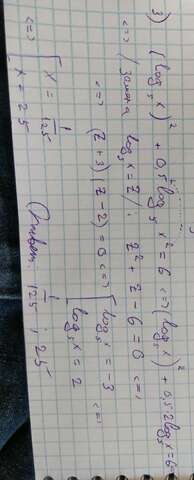 3) (log₅x)² + 0,5 log₅ x² = 6 <=> (log₅x)² + 0,5·2log₅x = 6
<=> / Замена log₅x = z / : z² + z - 6 = 0 <=>
<=> (z + 3)(z - 2) = 0 <=> [ log₅x = -3
log₅x = 2 <=>
<=> [ x = 1/125
x = 25
Ответ: 1/125 ; 25